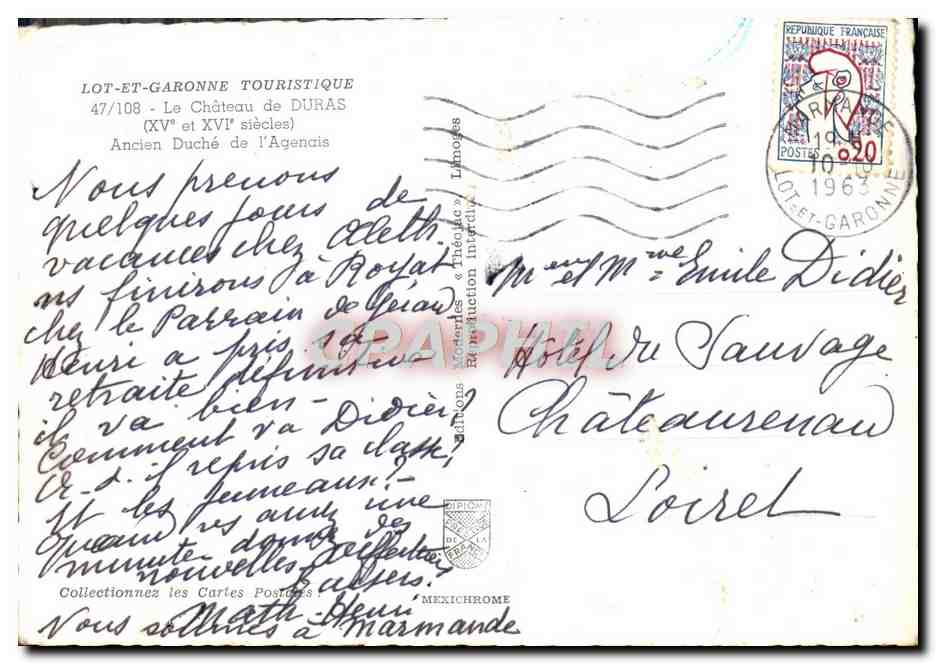 LOT-ET-GARONNE TOURISTIQUE
47/108 - Le Château de DURAS
(XVe et XVIe siècles)
Ancien Duché de l'Agenais
Nous prenons
quelques jours de
vacances chez Odeth.
ns finirons à Royat
chez le Parrain de
Henri a pris sa
retraite définitive
il va bien -
Comment va Didier?
A-t-il repris sa classe?
Et les jumeaux? -
Quand vs aurez une
minute donnez des
nouvelles Affectueux
baisers.
Math-Henri
Nous sommes à Marmande
Collectionnez les Cartes Postales!
Editions Modernes « Théojac » Limoges
Reproduction interdite
DIPLÔME
DE LA
FRANCE
MEXICHROME
REPUBLIQUE FRANÇAISE
POSTES 0,20
MARMANDE
10-9
1963
LOT-ET-GARONNE
Mr et Mme Emile Didier
Hôtel du Sauvage
Châteaurenau
Loiret
CPAPHIL